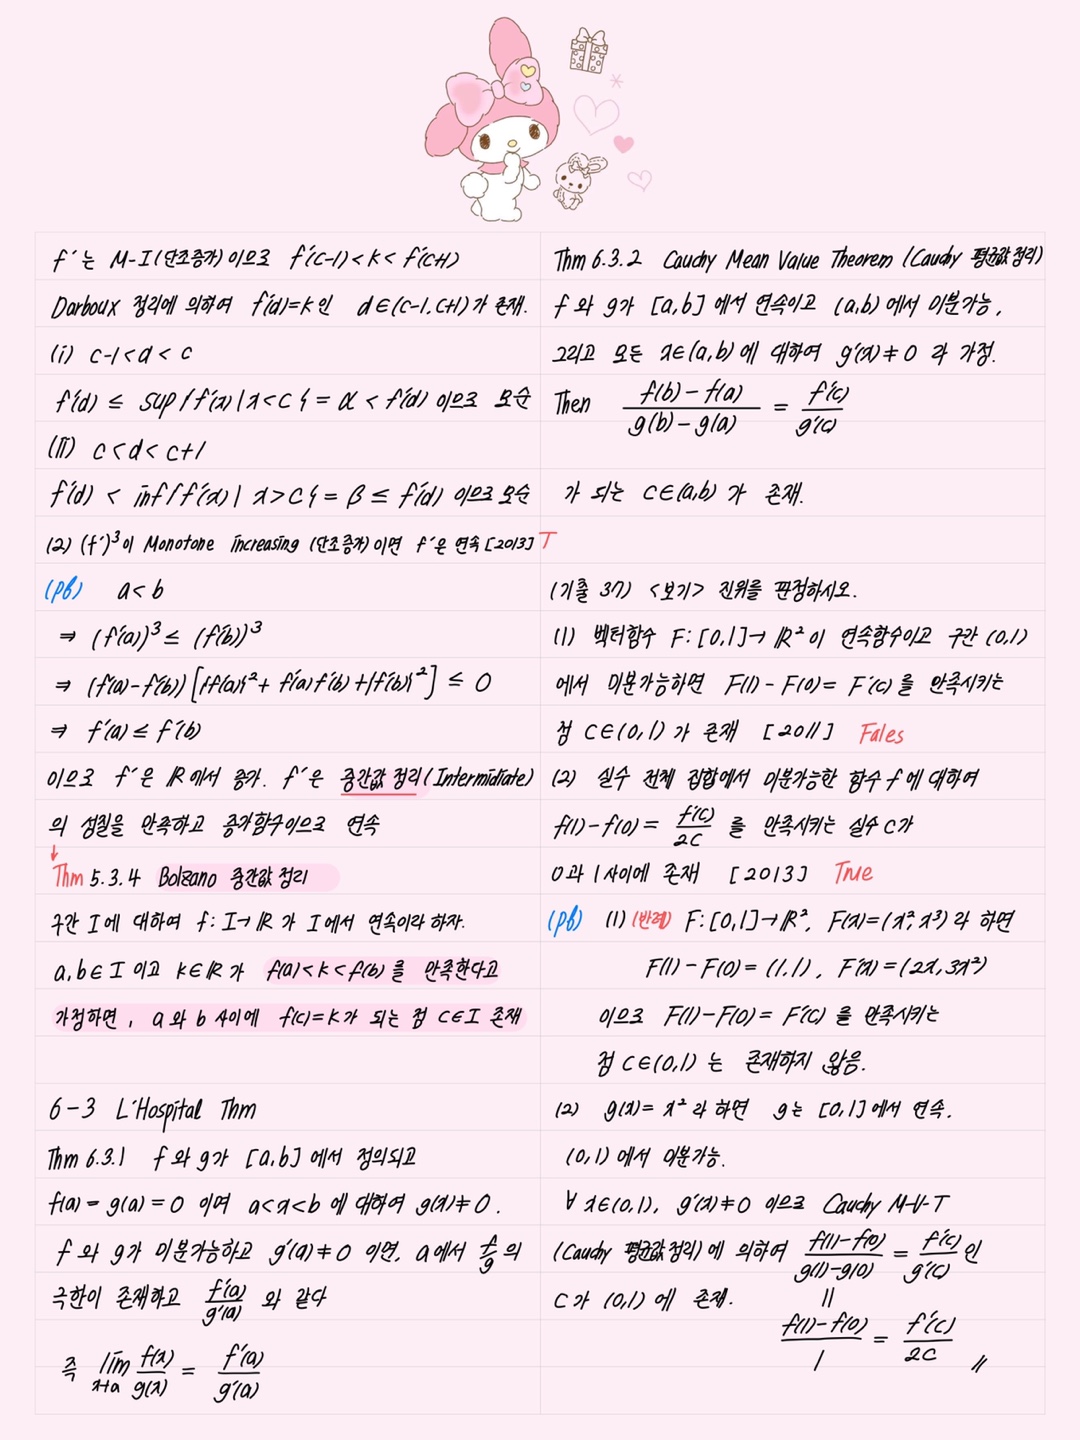 f'는 M-I(단조증가)이으로 f'(c-1)<k<f'(c+1)
Darboux 정리에 의하여 f'(d)=k인 d∈(c-1, c+1)가 존재.
(i) c-1<d<c
f'(d) ≤ sup{f'(x)|x<c} = α < f'(d) 이므로 모순
(ii) c<d<c+1
f'(d) < inf{f'(x)| x>c} = β ≤ f'(d) 이므로 모순
(2) (f')³이 Monotone increasing (단조증가)이면 f'은 연속 [2013] T
(pf) a<b
⇒ (f'(a))³ ≤ (f'(b))³
⇒ (f'(a)-f'(b)) [{f'(a)}²+ f'(a)f'(b)+{f'(b)}²] ≤ 0
⇒ f'(a) ≤ f'(b)
이으로 f'은 ℝ에서 증가. f'은 중간값 정리(Intermidiate)
의 성질을 만족하고 증가함수이으로 연속
↓
Thm 5.3.4 Bolzano 중간값 정리
구간 I에 대하여 f: I→ℝ가 I에서 연속이라 하자.
a,b∈I 이고 k∈ℝ가 f(a)<k<f(b)를 만족한다고
가정하면, a와 b 사이에 f(c)=k가 되는 점 c∈I 존재
6-3 L'Hospital Thm
Thm 6.3.1 f와 g가 [a,b]에서 정의되고
f(a)=g(a)=0 이며 a<x<b에 대하여 g(x)≠0.
f와 g가 미분가능하고 g'(a)≠0 이면, a에서 f/g의
극한이 존재하고 f'(a)/g'(a) 와 같다
즉 lim x→a f(x)/g(x) = f'(a)/g'(a)
Thm 6.3.2 Cauchy Mean Value Theorem (Cauchy 평균값 정리)
f와 g가 [a,b]에서 연속이고 (a,b)에서 미분가능,
그리고 모든 x∈(a,b)에 대하여 g'(x)≠0 라 가정.
Then f(b)-f(a)/g(b)-g(a) = f'(c)/g'(c)
가 되는 c∈(a,b)가 존재.
(기출 37) <보기> 진위를 판정하시오.
(1) 벡터함수 F: [0,1]→ℝ²이 연속함수이고 구간 (0,1)
에서 미분가능하면 F(1)-F(0)= F'(c)를 만족시키는
점 c∈(0,1)가 존재 [2011] Fales
(2) 실수 전체 집합에서 미분가능한 함수 f에 대하여
f(1)-f(0)= f'(c)/2c 를 만족시키는 실수 c가
0과 1사이에 존재 [2013] True
(pf) (1) (반례) F: [0,1]→ℝ², F(x)=(x², x³)라 하면
F(1)-F(0)= (1,1), F'(x)=(2x, 3x²)
이으로 F(1)-F(0)= F'(c)를 만족시키는
점 c∈(0,1)는 존재하지 않음.
(2) g(x)= x²라 하면 g는 [0,1]에서 연속.
(0,1)에서 미분가능.
∀x∈(0,1), g'(x)≠0 이므로 Cauchy M·V·T
(Cauchy 평균값 정리)에 의하여 f(1)-f(0)/g(1)-g(0) = f'(c)/g'(c) 인
c가 (0,1)에 존재. ||
f(1)-f(0)/1 = f'(c)/2c //